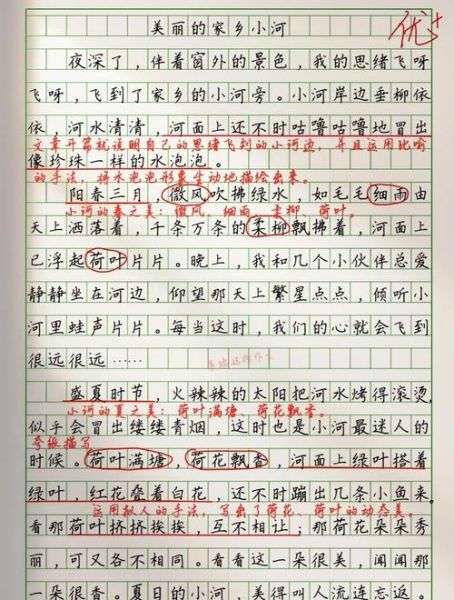 美丽的家乡小河
优+
夜深了，伴着窗外的景色，我的思绪飞呀
飞呀，飞到了家乡的小河旁。小河岸边垂柳依
依，河水清清，河面上还不时咕噜咕噜地冒出
文章开篇就说明自己的思绪飞到的小河边，并且运用比喻
像珍珠一样的水泡泡。
的手法，将水泡泡形象生动地描绘出来。
阳春三月，微风吹拂绿水，如毛毛细雨由
小河的春之美：微风、细雨、垂柳、荷叶。
天上洒落着，千条万条的柔柳飘拂着，河面上
已浮起荷叶片片。晚上，我和几个小伙伴总爱
静静坐在河边，仰望那天上繁星点点，倾听小
河里蛙声片片。每当这时，我们的心就会飞到
很远很远……
盛夏时节，火辣辣的太阳把河水烤得滚烫，
小河的夏之美：荷叶满塘、荷花飘香。
似乎会冒出缕缕青烟，这时也是小河最迷人的
夸张描写
时候。荷叶满塘，荷花飘香，河面上绿叶搭着
绿叶，红花叠着白花，还不时蹦出几条小鱼来。
运用拟人的手法，写出了荷花、荷叶的动态美。
看那荷叶挤挤挨挨，互不相让；那荷花朵朵秀
丽，可又各不相同。看看这一朵很美，闻闻那
一朵很香。夏日的小河，美得叫人流连忘返。